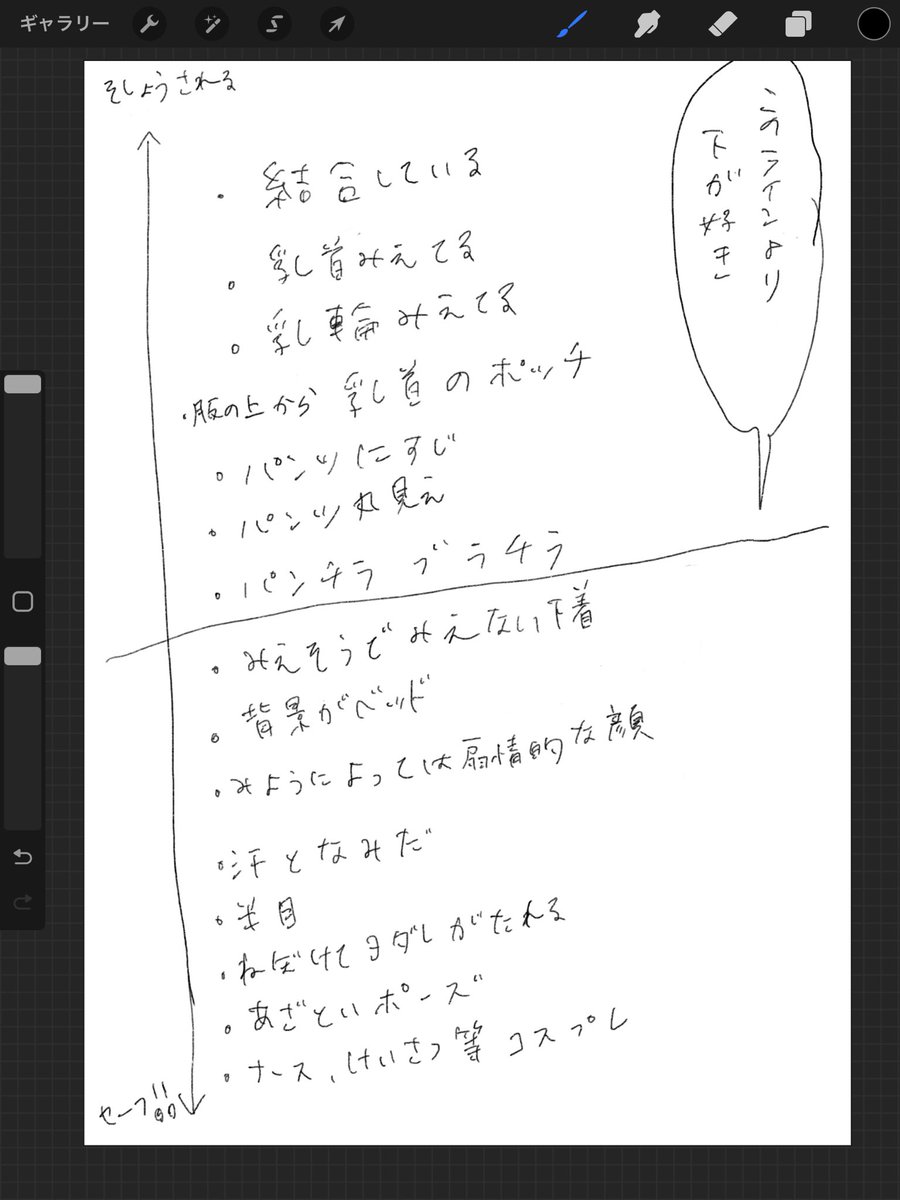 ギャラリー
そしょうされる
このラインより
下が好き
・結合している
・乳首みえてる
・乳輪みえてる
・服の上から乳首のポッチ
・パンツにすじ
・パンツ丸見え
・パンチラ ブラチラ
・みえそうでみえない下着
・背景がベッド
・みようによっては扇情的な顔
・汗となみだ
・半目
・ねぼけてヨダレがたれる
・あざといポーズ
・ナース、けいさつ等コスプレ
セーフ!!